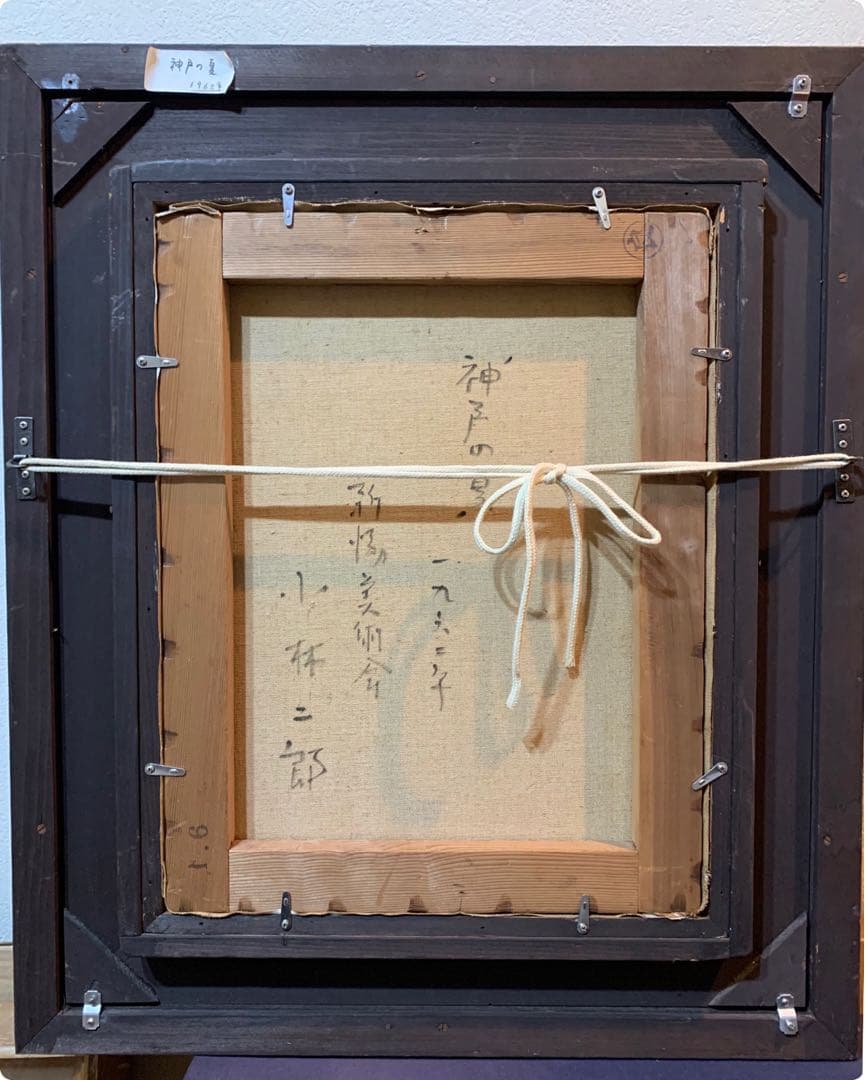 神戸の
1962年
神戸の
一九六二年
新協美術会
小林二郎